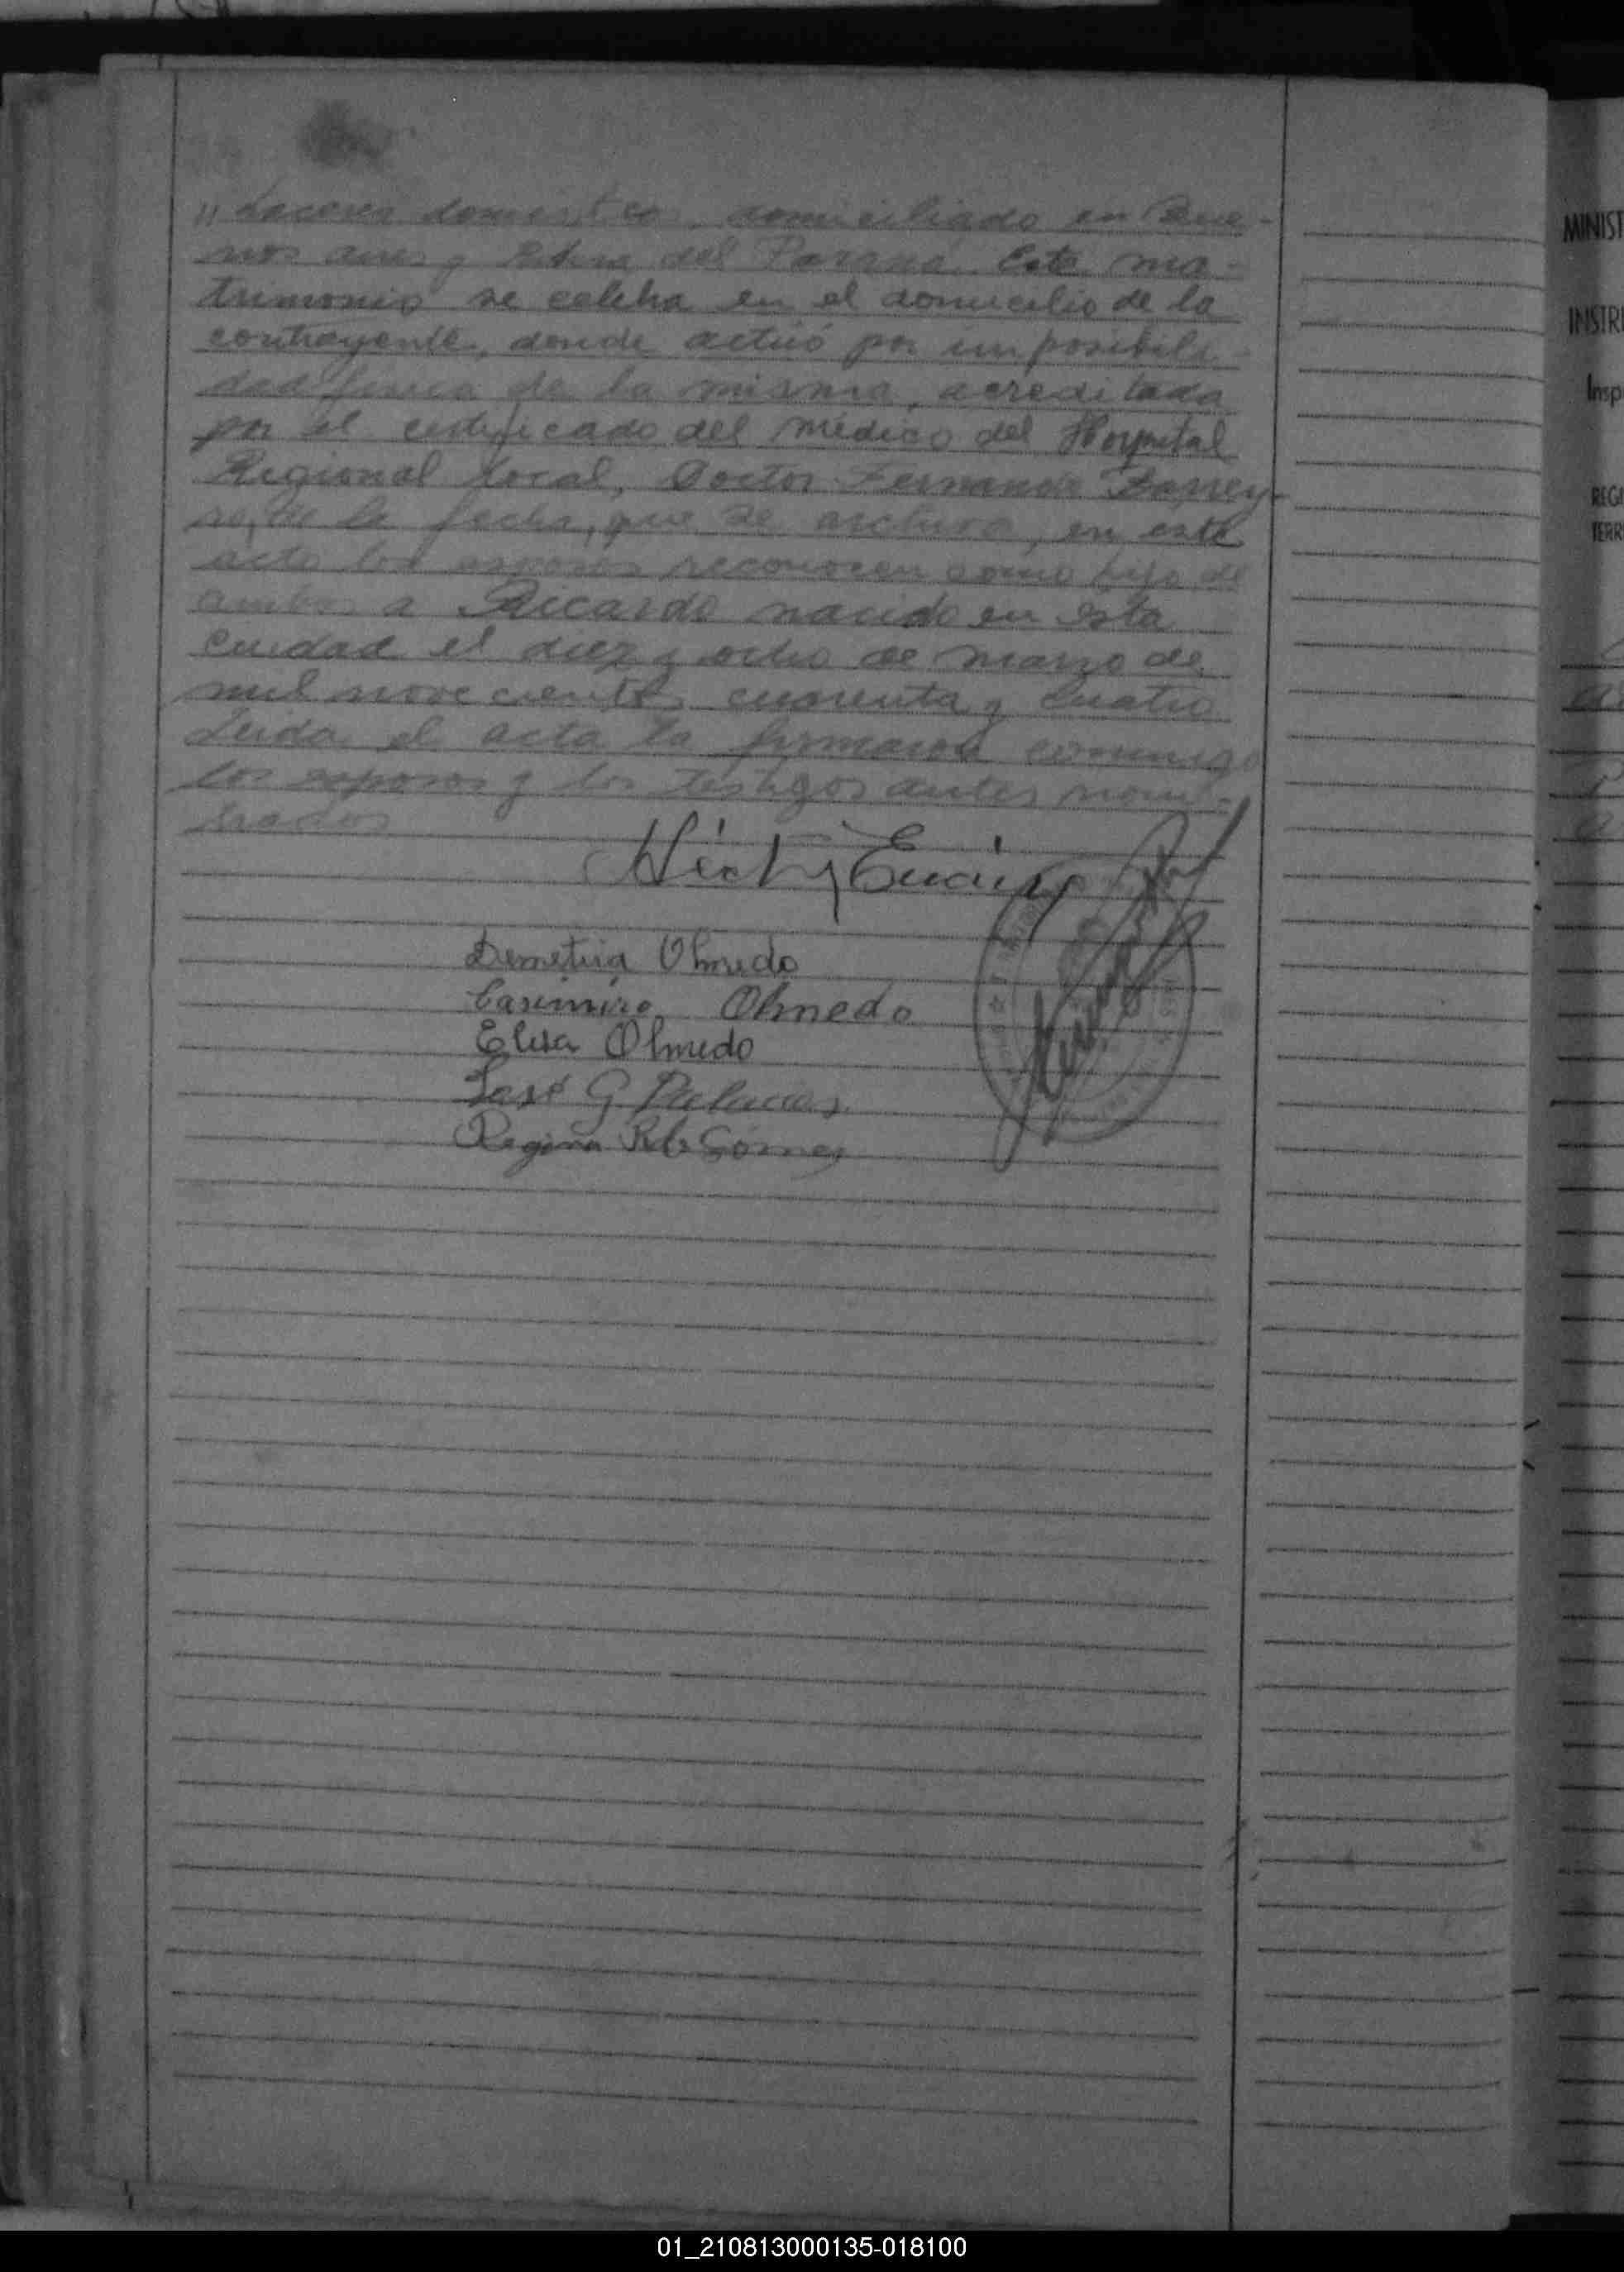 " quehaceres domesticos, domiciliado en Bue-
nos aires y Ribera del Paraná. Este ma-
trimonio se celebra en el domicilio de la
contrayente, donde actúo por imposibili-
dad física de la misma, acreditada
por el certificado del médico del Hospital
Regional local, Doctor Fernando Barrey-
ro, de la fecha, que se archiva, en este
acto los esposos reconocen como hijo de
ambos a Ricardo nacido en esta
ciudad el diez y ocho de marzo de
mil novecientos cuarenta y cuatro
Leida el acta la firmaron conmigo
los esposos y los testigos antes nom-
brados
Demetria Olmedo
Casimiro Olmedo
Elisa Olmedo
José G Palacios
Regina R de Gómez
MINIST
INSTRU
Insp
REGI
TERR
01_210813000135-018100